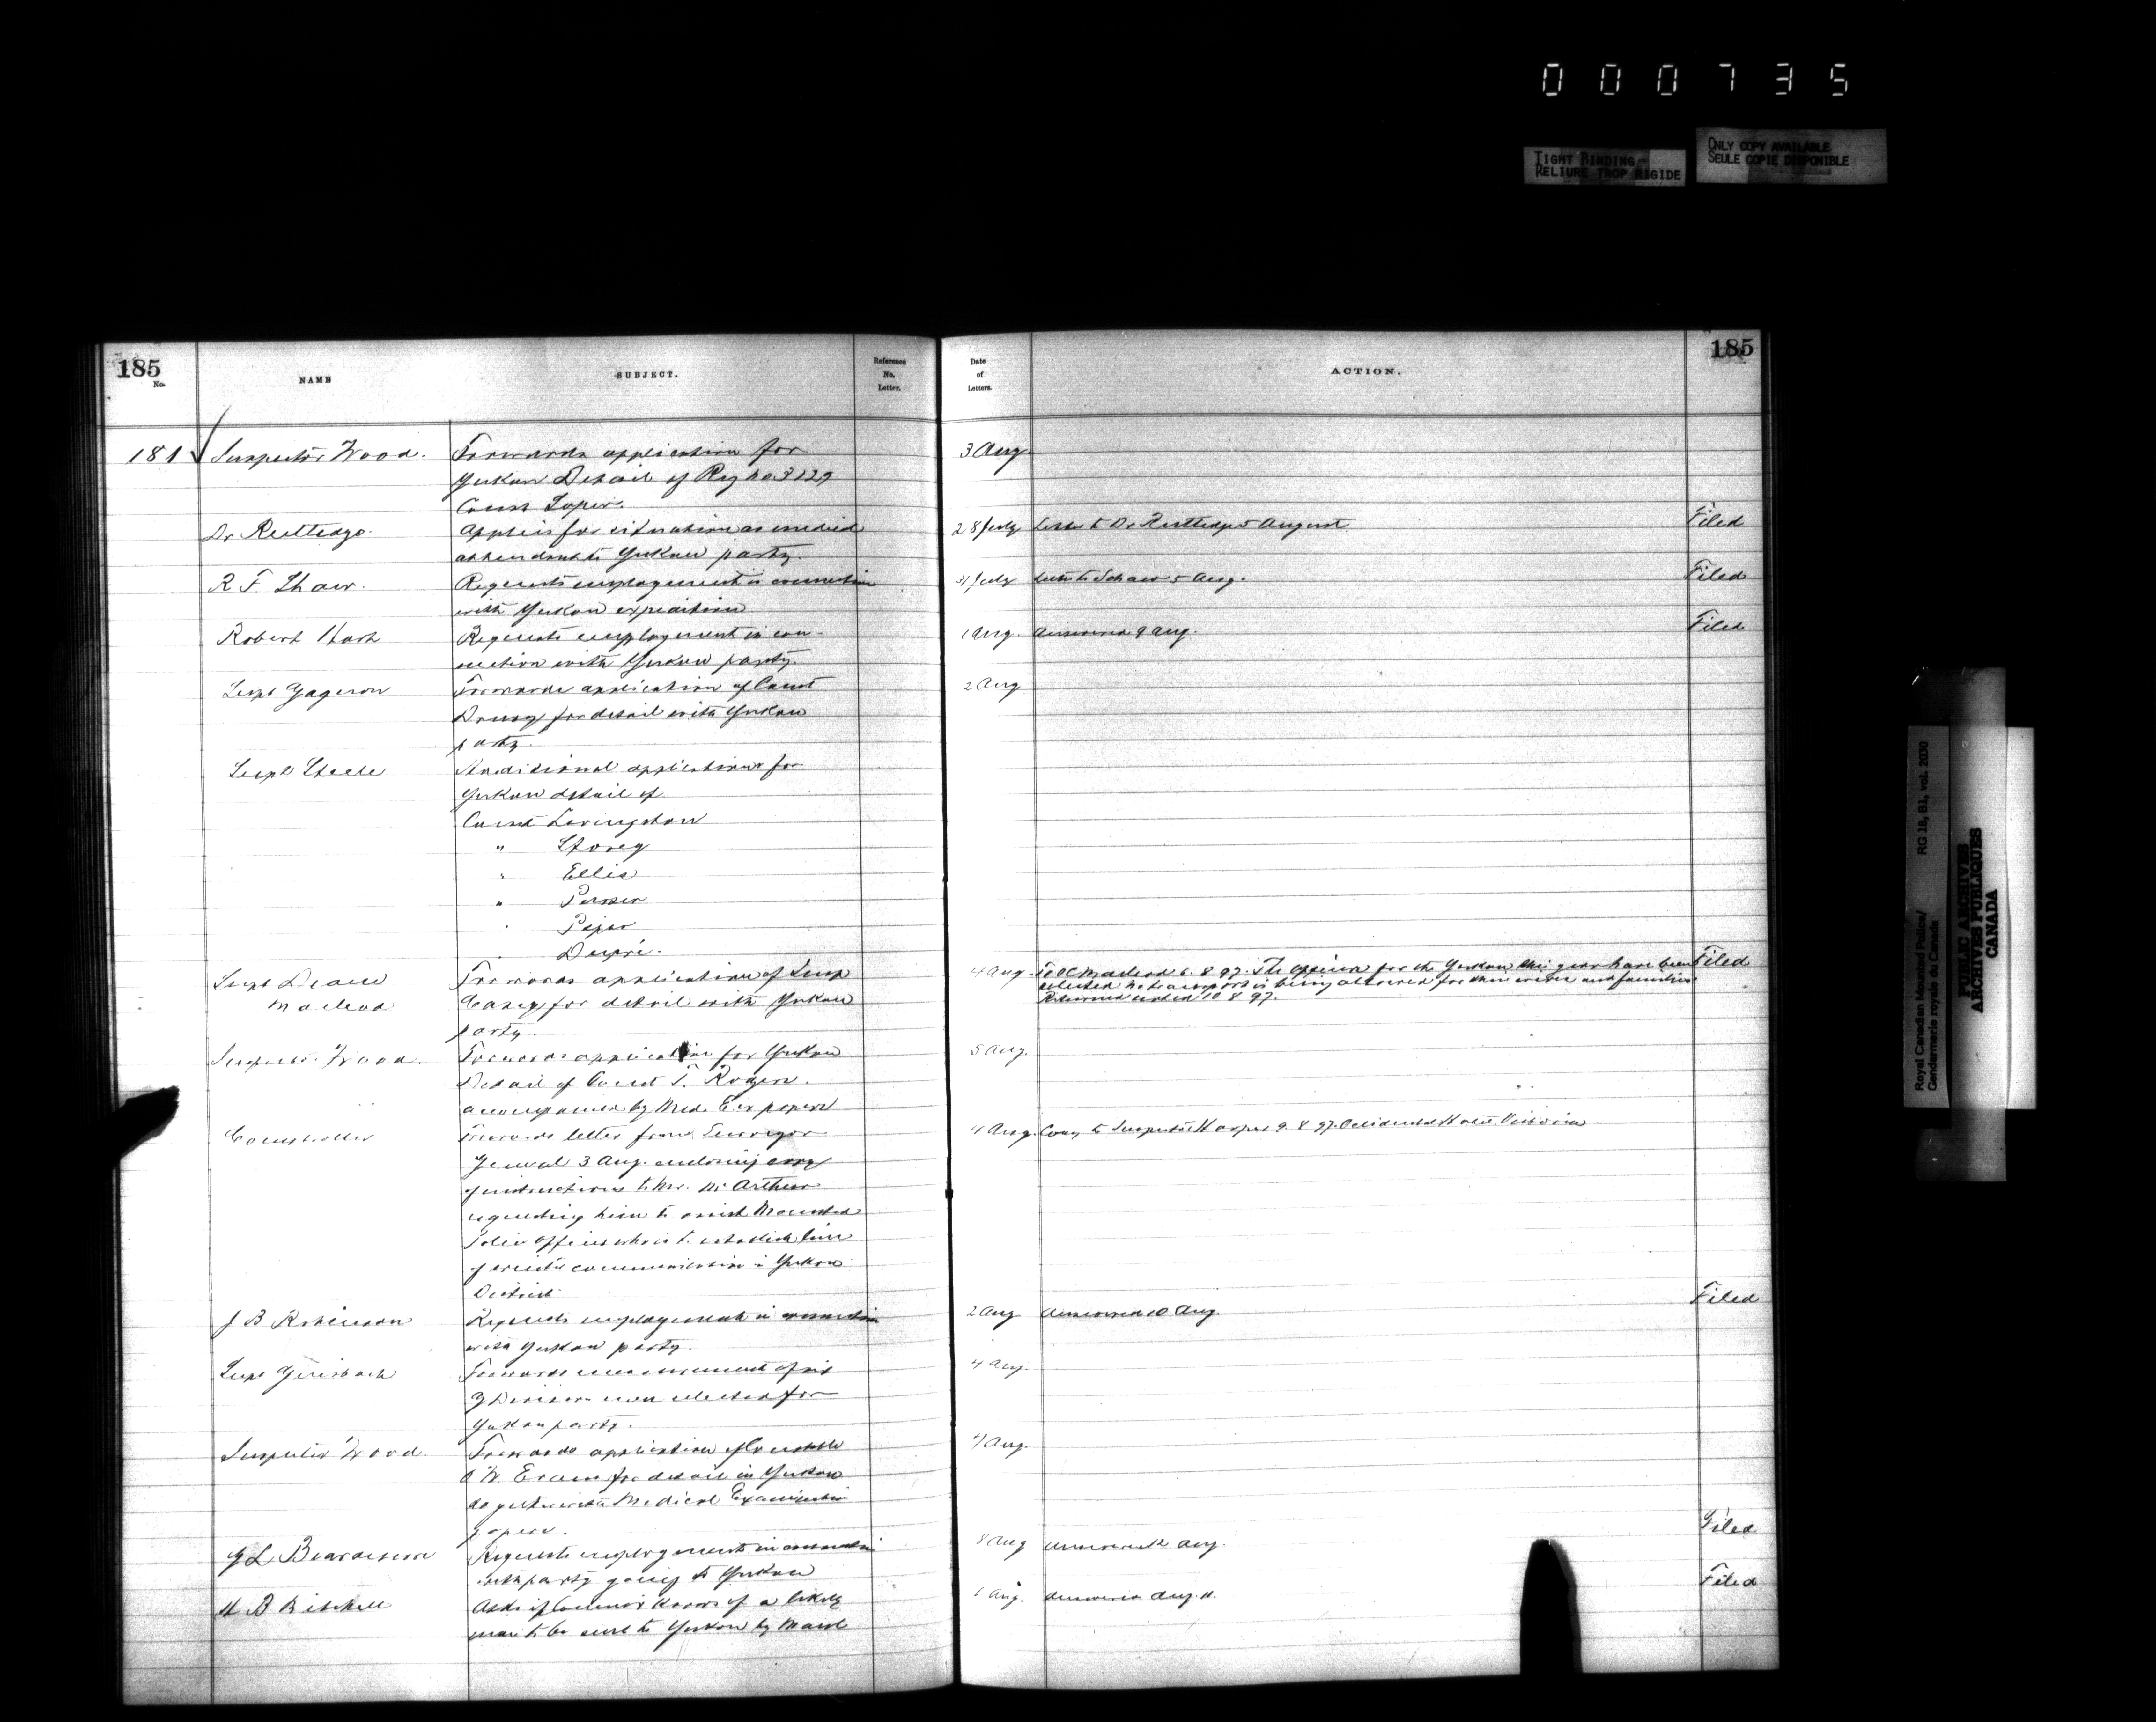 000735
TIGHT BINDING
RELIURE TROP RIGIDE
ONLY COPY AVAILABLE
SEULE COPIE DISPONIBLE
185
No.
NAME
SUBJECT.
Reference No. Letter.
Date of Letters.
ACTION.
185
181 Inspector Wood. Forwards application for 3 Aug.
Yukon Detail of Reg No 3129
Const Soper.
Dr Ruttledge. Applies for situation as medical 28 July Letter to Dr Ruttledge 5 August. Filed
attendant to Yukon party.
R F. Shaw. Requests employment in connection 31 July Letter to Shaw 5 Aug. Filed
with Yukon expedition
Robert Hart Requests employment in con- 1 Aug. Answered 9 Aug. Filed
nection with Yukon party.
Supt Gagnon Forwards application of Const 2 Aug
for detail with Yukon
party.
Supt Steele Additional applications for
Yukon detail of
Const Livingston
" Storey
" Ellis
"
"
" Dupré.
Supt Deane Forwards application of Insp 4 Aug. To OC Macleod 6. 8 97. The officers for the Yukon this year have been Filed
Macleod Casey for detail with Yukon selected no transport is being allowed for their wives and families
party. Returned 10 8 97.
Inspector Wood. Forwards application for Yukon 5 Aug.
Detail of Const T. Rogers.
accompanied by Med. Ex papers
Comptroller Forwards letter from Surveyor 4 Aug. Copy to Inspector Harper 9. 8 97. Occidental Hotel Victoria
General 3 Aug. enclosing copy
of instructions to Mr. McArthur
requesting him to assist Mounted
Police Officer who is to establish line
of winter communication in Yukon
District.
J B Robinson Requests employment in connection 2 Aug Answered 10 Aug. Filed
with Yukon party.
Supt Griesbach Forwards measurement of six 4 Aug.
G Division men selected for
Yukon party.
Inspector Wood. Forwards application of Constable 4 Aug.
for detail in Yukon
together with Medical Examination
papers.
G L Beardesson Requests employment in connection 8 Aug Answered 12 Aug. Filed
with party going to Yukon
H. B. Mitchell Asks if Commr knows of a likely 1 Aug. Answered Aug. 11. Filed
man to be sent to Yukon by
Royal Canadian Mounted Police/
Gendarmerie royale du Canada
RG 18, B1, vol. 2030
PUBLIC ARCHIVES
ARCHIVES PUBLIQUES
CANADA